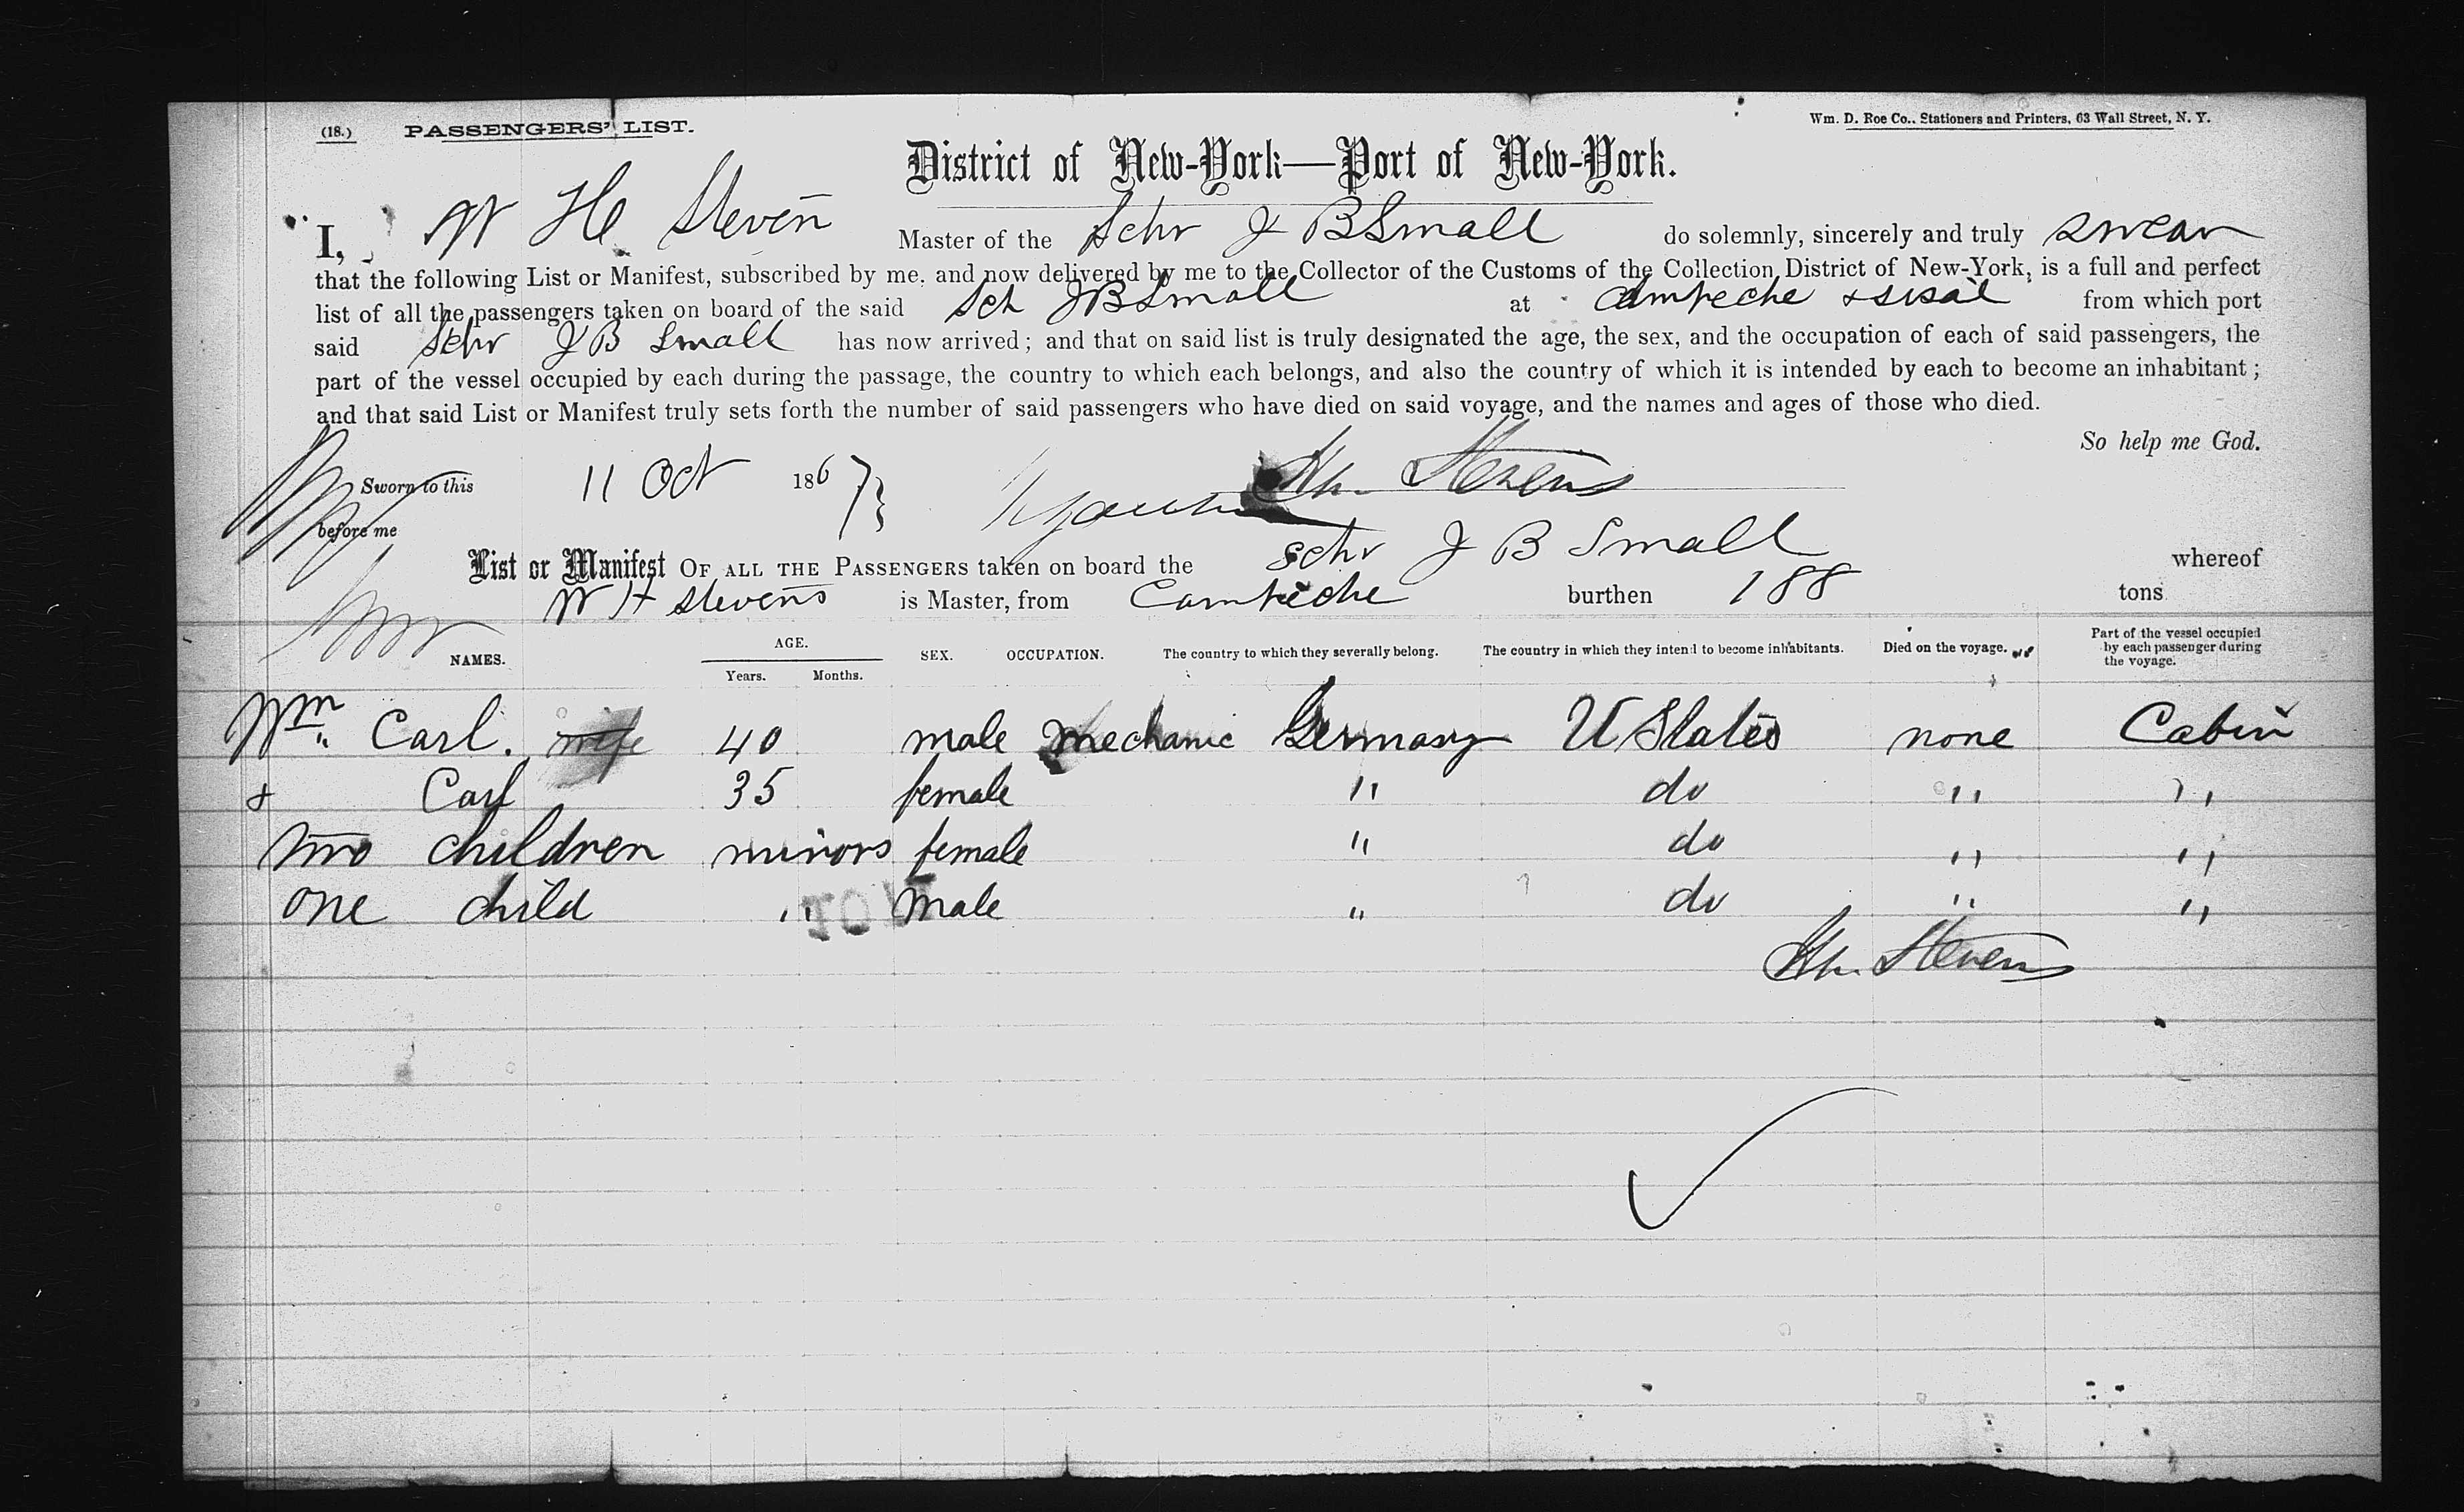 (18.) PASSENGERS' LIST. Wm. D. Roe Co., Stationers and Printers, 63 Wall Street, N. Y.
District of New-York—Port of New-York.
I, W H Steven Master of the Schr J B Small do solemnly, sincerely and truly swear
that the following List or Manifest, subscribed by me, and now delivered by me to the Collector of the Customs of the Collection District of New-York, is a full and perfect
list of all the passengers taken on board of the said Sch J B Small at Campeche & Sisal from which port
said Schr J B Small has now arrived; and that on said list is truly designated the age, the sex, and the occupation of each of said passengers, the
part of the vessel occupied by each during the passage, the country to which each belongs, and also the country of which it is intended by each to become an inhabitant;
and that said List or Manifest truly sets forth the number of said passengers who have died on said voyage, and the names and ages of those who died.
So help me God.
Sworn to this 11 Oct 1867 } Wm. Stevens
before me
List or Manifest OF ALL THE PASSENGERS taken on board the schr J B Small whereof
W H Stevens is Master, from Campeche burthen 188 tons
NAMES. AGE. Years. Months. SEX. OCCUPATION. The country to which they severally belong. The country in which they intend to become inhabitants. Died on the voyage. Part of the vessel occupied by each passenger during the voyage.
Wm. Carl. wife 40 male mechanic Germany U States none Cabin
& Carl 35 female " do " "
two children minors female " do " "
one child " male " do " "
Wm. Stevens